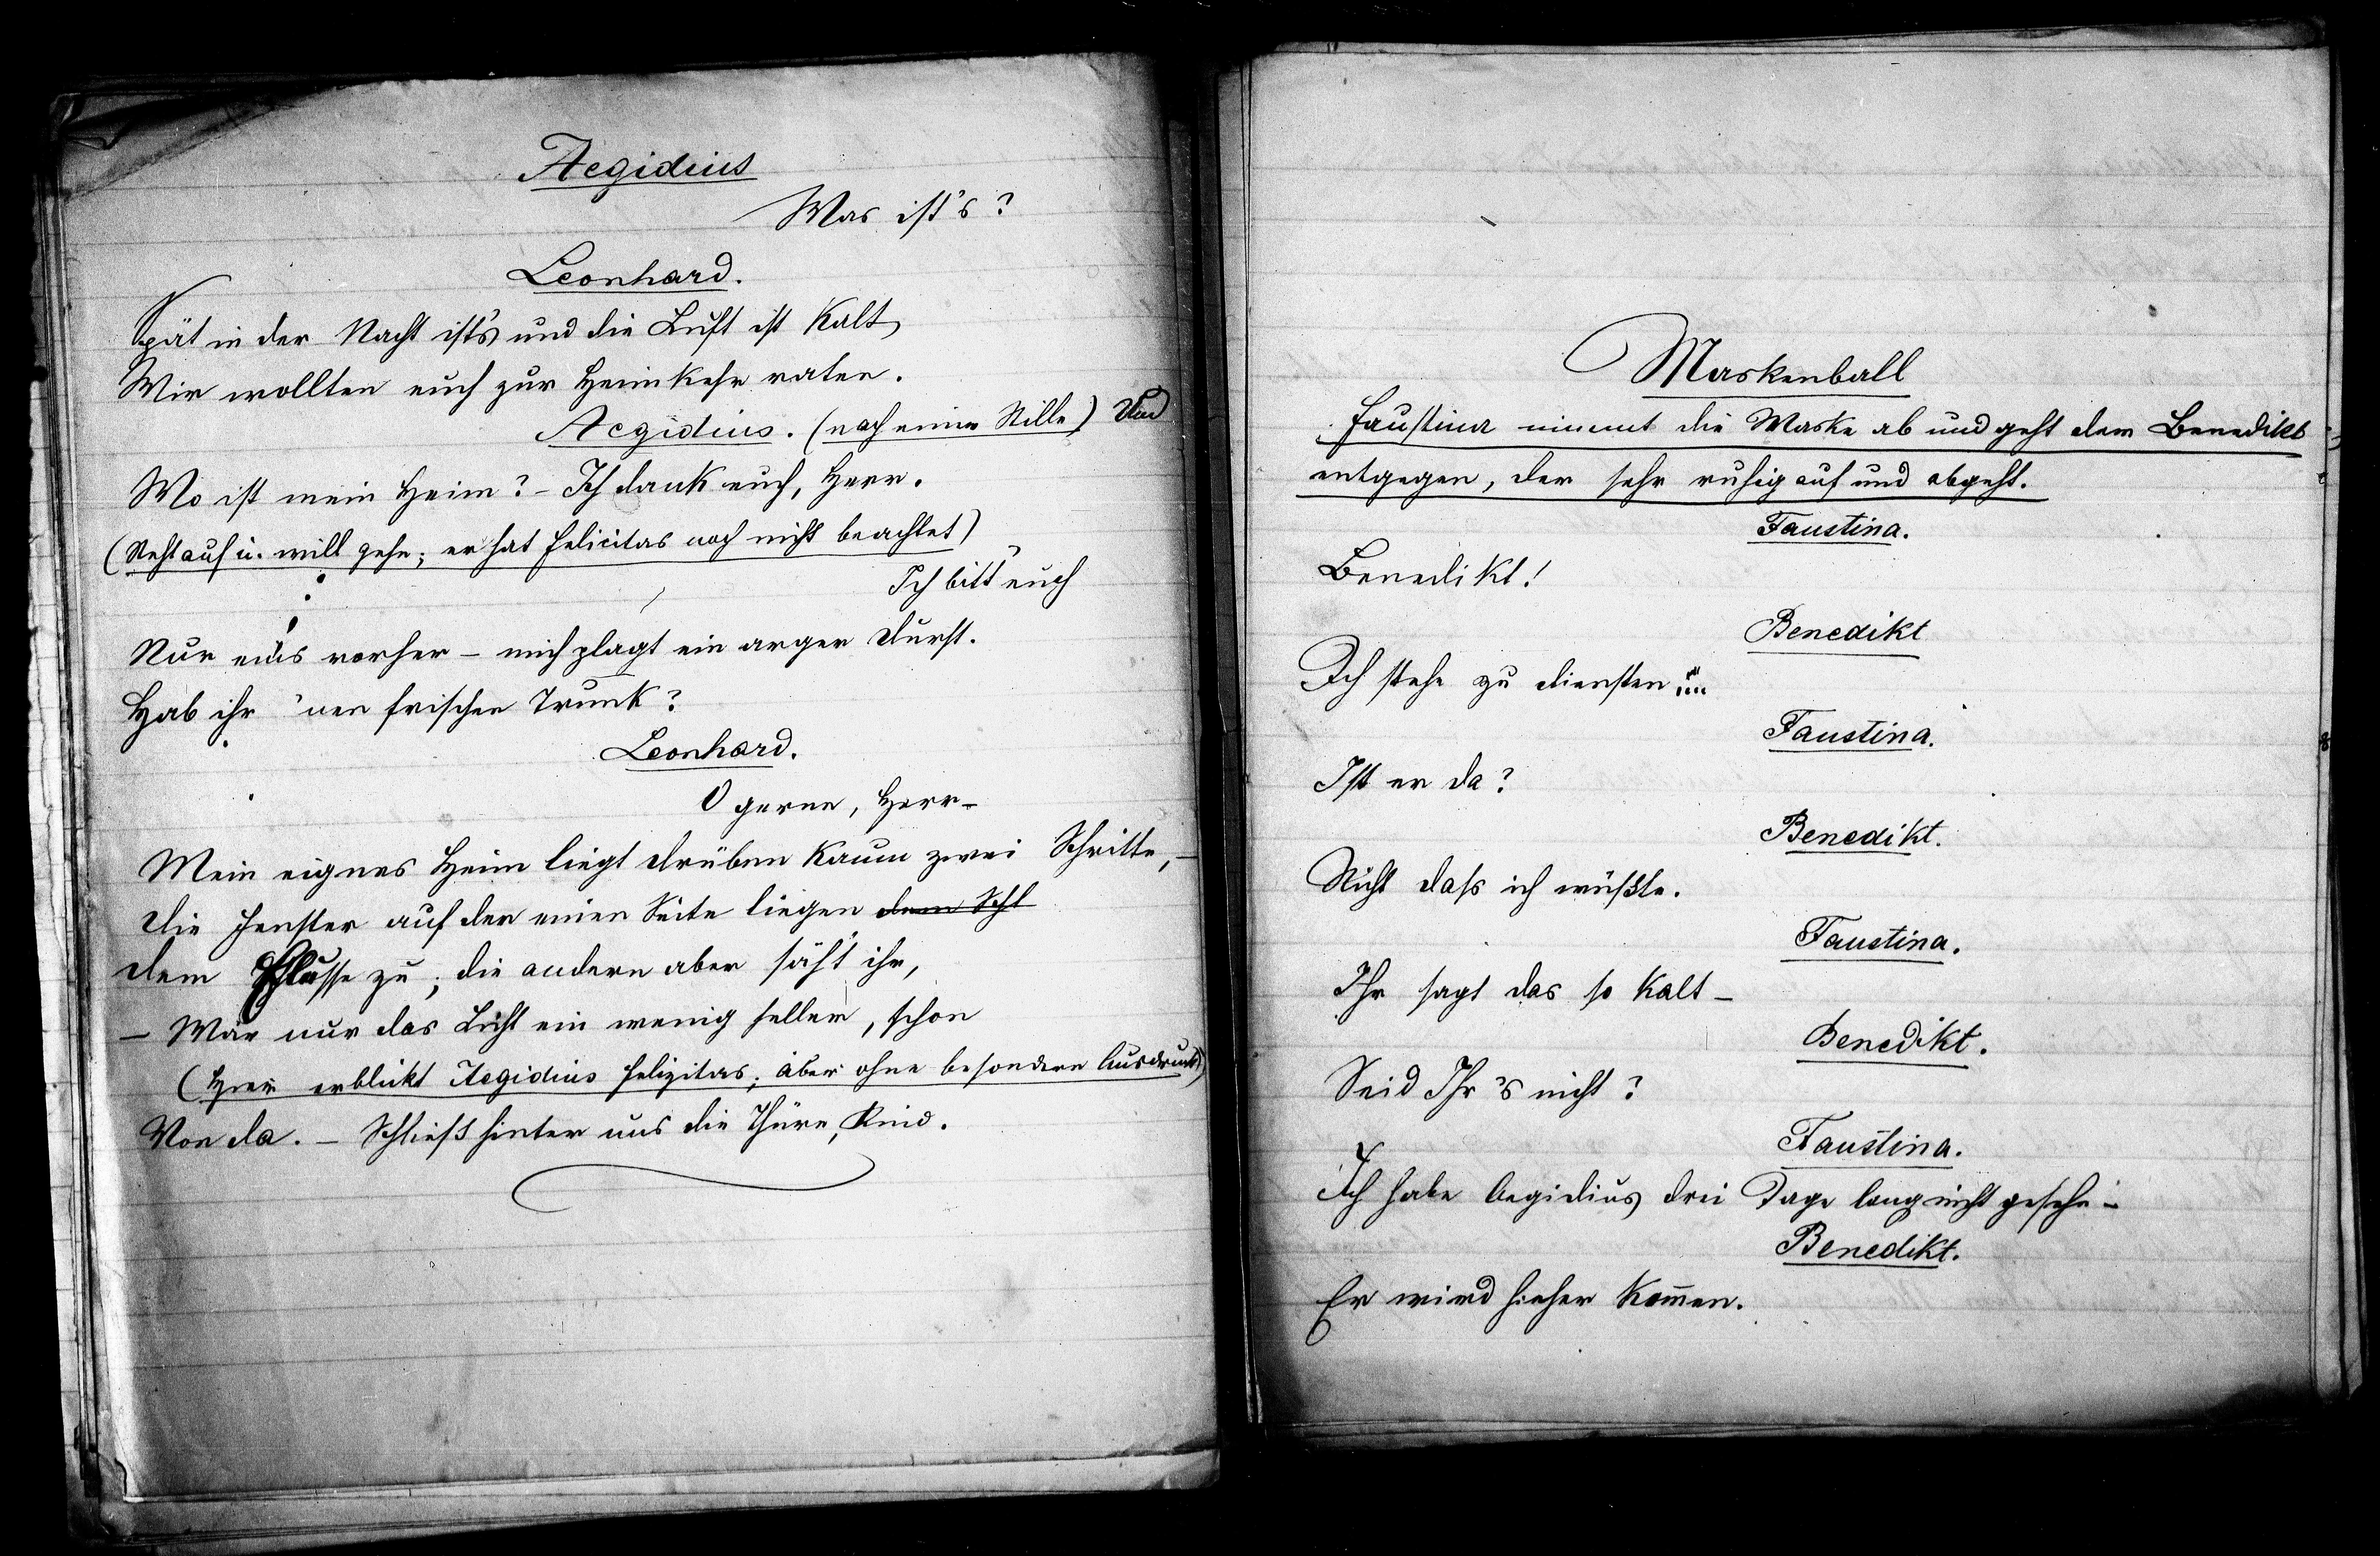 Aegidius
Was ist's?
Leonhard.
Spät in der Nacht ist's und die Luft ist kalt,
Wir wollten euch zur Heimkehr raten.
Aegidius. (nach einer Stille) Und
Wo ist mein Heim? – Ich dank euch, Herr.
(Steht auf u. will gehn; er hat Felicitas noch nicht beachtet)
Ich bitt' euch
Nur eins vorher – mich plagt ein arger Durst.
Hab ihr 'nen frischen Trunk?
Leonhard.
O gerne, Herr –
Mein eignes Heim liegt drüben kaum zwei Schritte, –
Die Fenster auf der einen Seite liegen dem Schl
dem Flusse zu; die andern aber säht ihr,
– Wär nur das Licht ein wenig heller, schon
(Hier erblickt Aegidius Felizitas; aber ohne besondern Ausdruck)
Von da. – Schließ hinter uns die Thüre, Kind.
Maskenball
Faustina nimmt die Maske ab und geht dem Benedikt
entgegen, der sehr ruhig auf und abgeht.
Faustina.
Benedikt!
Benedikt
Ich stehe zu Diensten
Faustina.
Ist er da?
Benedikt.
Nicht daß ich wüßte.
Faustina.
Ihr sagt das so kalt –
Benedikt.
Seid Ihr's nicht?
Faustina.
Ich habe Aegidius drei Tage lang nicht gesehn –
Benedikt.
Er wird hieher kom̅en.